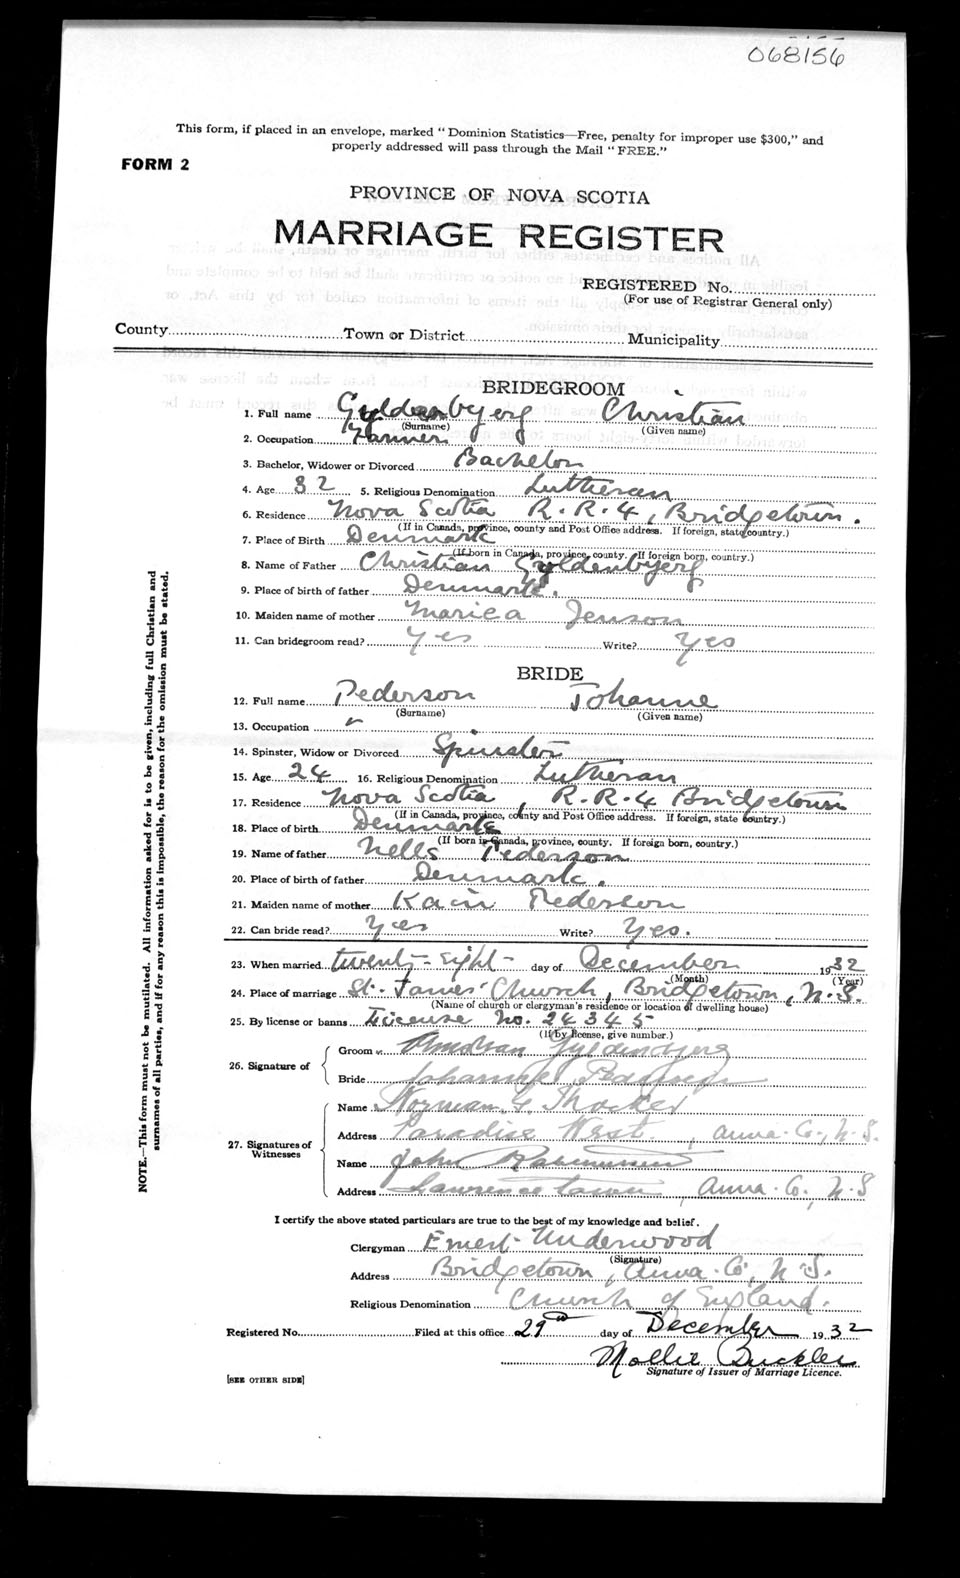 068156
This form, if placed in an envelope, marked "Dominion Statistics—Free, penalty for improper use $300," and
properly addressed will pass through the Mail "FREE."
FORM 2
PROVINCE OF NOVA SCOTIA
MARRIAGE REGISTER
REGISTERED No.
(For use of Registrar General only)
County Town or District Municipality
BRIDEGROOM
1. Full name Gyldenbjerg Christian
(Surname) (Given name)
2. Occupation Farmer
3. Bachelor, Widower or Divorced Bachelor
4. Age 32 5. Religious Denomination Lutheran
6. Residence Nova Scotia R.R.4, Bridgetown.
(If in Canada, province, county and Post Office address. If foreign, state country.)
7. Place of Birth Denmark
(If born in Canada, province, county. If foreign born, country.)
8. Name of Father Christian Gyldenbjerg
9. Place of birth of father Denmark.
10. Maiden name of mother Mariea Jenson
11. Can bridegroom read? Yes Write? Yes
BRIDE
12. Full name Pederson Johanne
(Surname) (Given name)
13. Occupation
14. Spinster, Widow or Divorced Spinster
15. Age 24 16. Religious Denomination Lutheran
17. Residence Nova Scotia, R.R.4 Bridgetown
(If in Canada, province, county and Post Office address. If foreign, state country.)
18. Place of birth Denmark
(If born in Canada, province, county. If foreign born, country.)
19. Name of father Nells Pederson
20. Place of birth of father Denmark.
21. Maiden name of mother Pederson
22. Can bride read? Yes Write? Yes.
23. When married twenty-Eight day of December 1932
(Month) (Year)
24. Place of marriage St. James' Church, Bridgetown, N.S.
(Name of church or clergyman's residence or location of dwelling house)
25. By license or banns License No. 24345
(If by license, give number.)
26. Signature of
Groom Christian Gyldenbjerg
Bride Johanne Pedersen
27. Signatures of Witnesses
Name Norman G.
Address Paradise West, Anna. Co., N.S.
Name John Rasmussen
Address Lawrencetown, Anna. Co., N.S
I certify the above stated particulars are true to the best of my knowledge and belief.
Clergyman Ernest Underwood
(Signature)
Address Bridgetown, Anna. Co, N.S.
Religious Denomination Church of England.
Registered No. Filed at this office 29th day of December 1932
Mollie Buckler
Signature of Issuer of Marriage Licence.
[SEE OTHER SIDE]
NOTE.—This form must not be mutilated. All information asked for is to be given, including full Christian and
surnames of all parties, and if for any reason this is impossible, the reason for the omission must be stated.